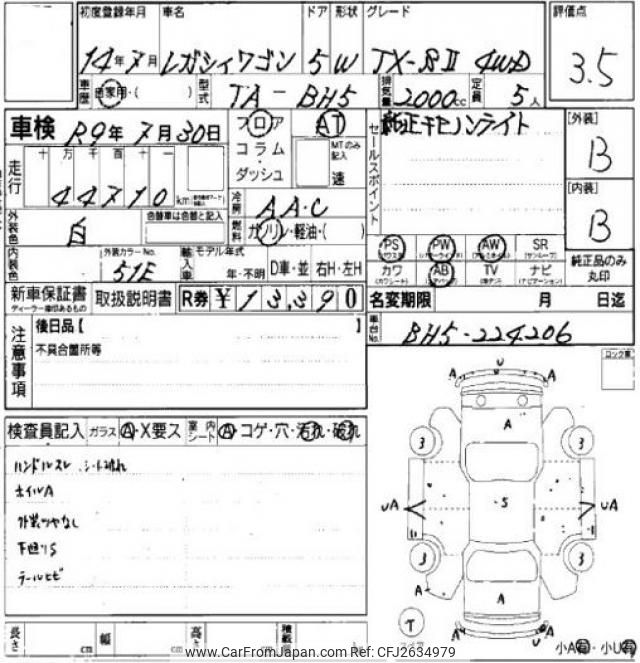 初度登録年月 車名 ドア 形状 グレード 評価点
14年7月 レガシィワゴン 5 W TX-SⅡ 4WD 3.5
車歴 自家用・( ) 型式 TA-BH5 排気量 2000cc 定員 5人
車検 R9年7月30日 フロア AT セールスポイント 純正キセノンライト [外装]
コラム・ MTのみ記入 B
走行 十 万 千 百 十 一 ダッシュ 速
44710 km 冷房 AAC [内装]
外装色 白 色替車は色替と記入 燃料 ガソリン・軽油・( ) B
PS PW AW SR
内装色 外装カラーNo. 51E 輸入車 モデル年式 年・不明 D車・並 右H・左H カワ AB TV ナビ 純正品のみ丸印
新車保証書 取扱説明書 R券 ¥13,390 名変期限 月 日迄
ディーラー捺印あるもの
注意事項 後日品【 】 車台No. BH5-224206
不具合箇所等 ロック車
U
A A
A
検査員記入 ガラス A・X要ス 室内シート A・コゲ・穴・汚れ・破れ
3 3
ハンドルスレ、シート破れ
ホイルA S
UA UA
外装ツヤなし
下廻りS 3 3
テールヒビ
A A
T
A U A
長さ cm 幅 cm 高さ cm 積載量 小A有・小U有
www.CarFromJapan.com Ref: CFJ2634979